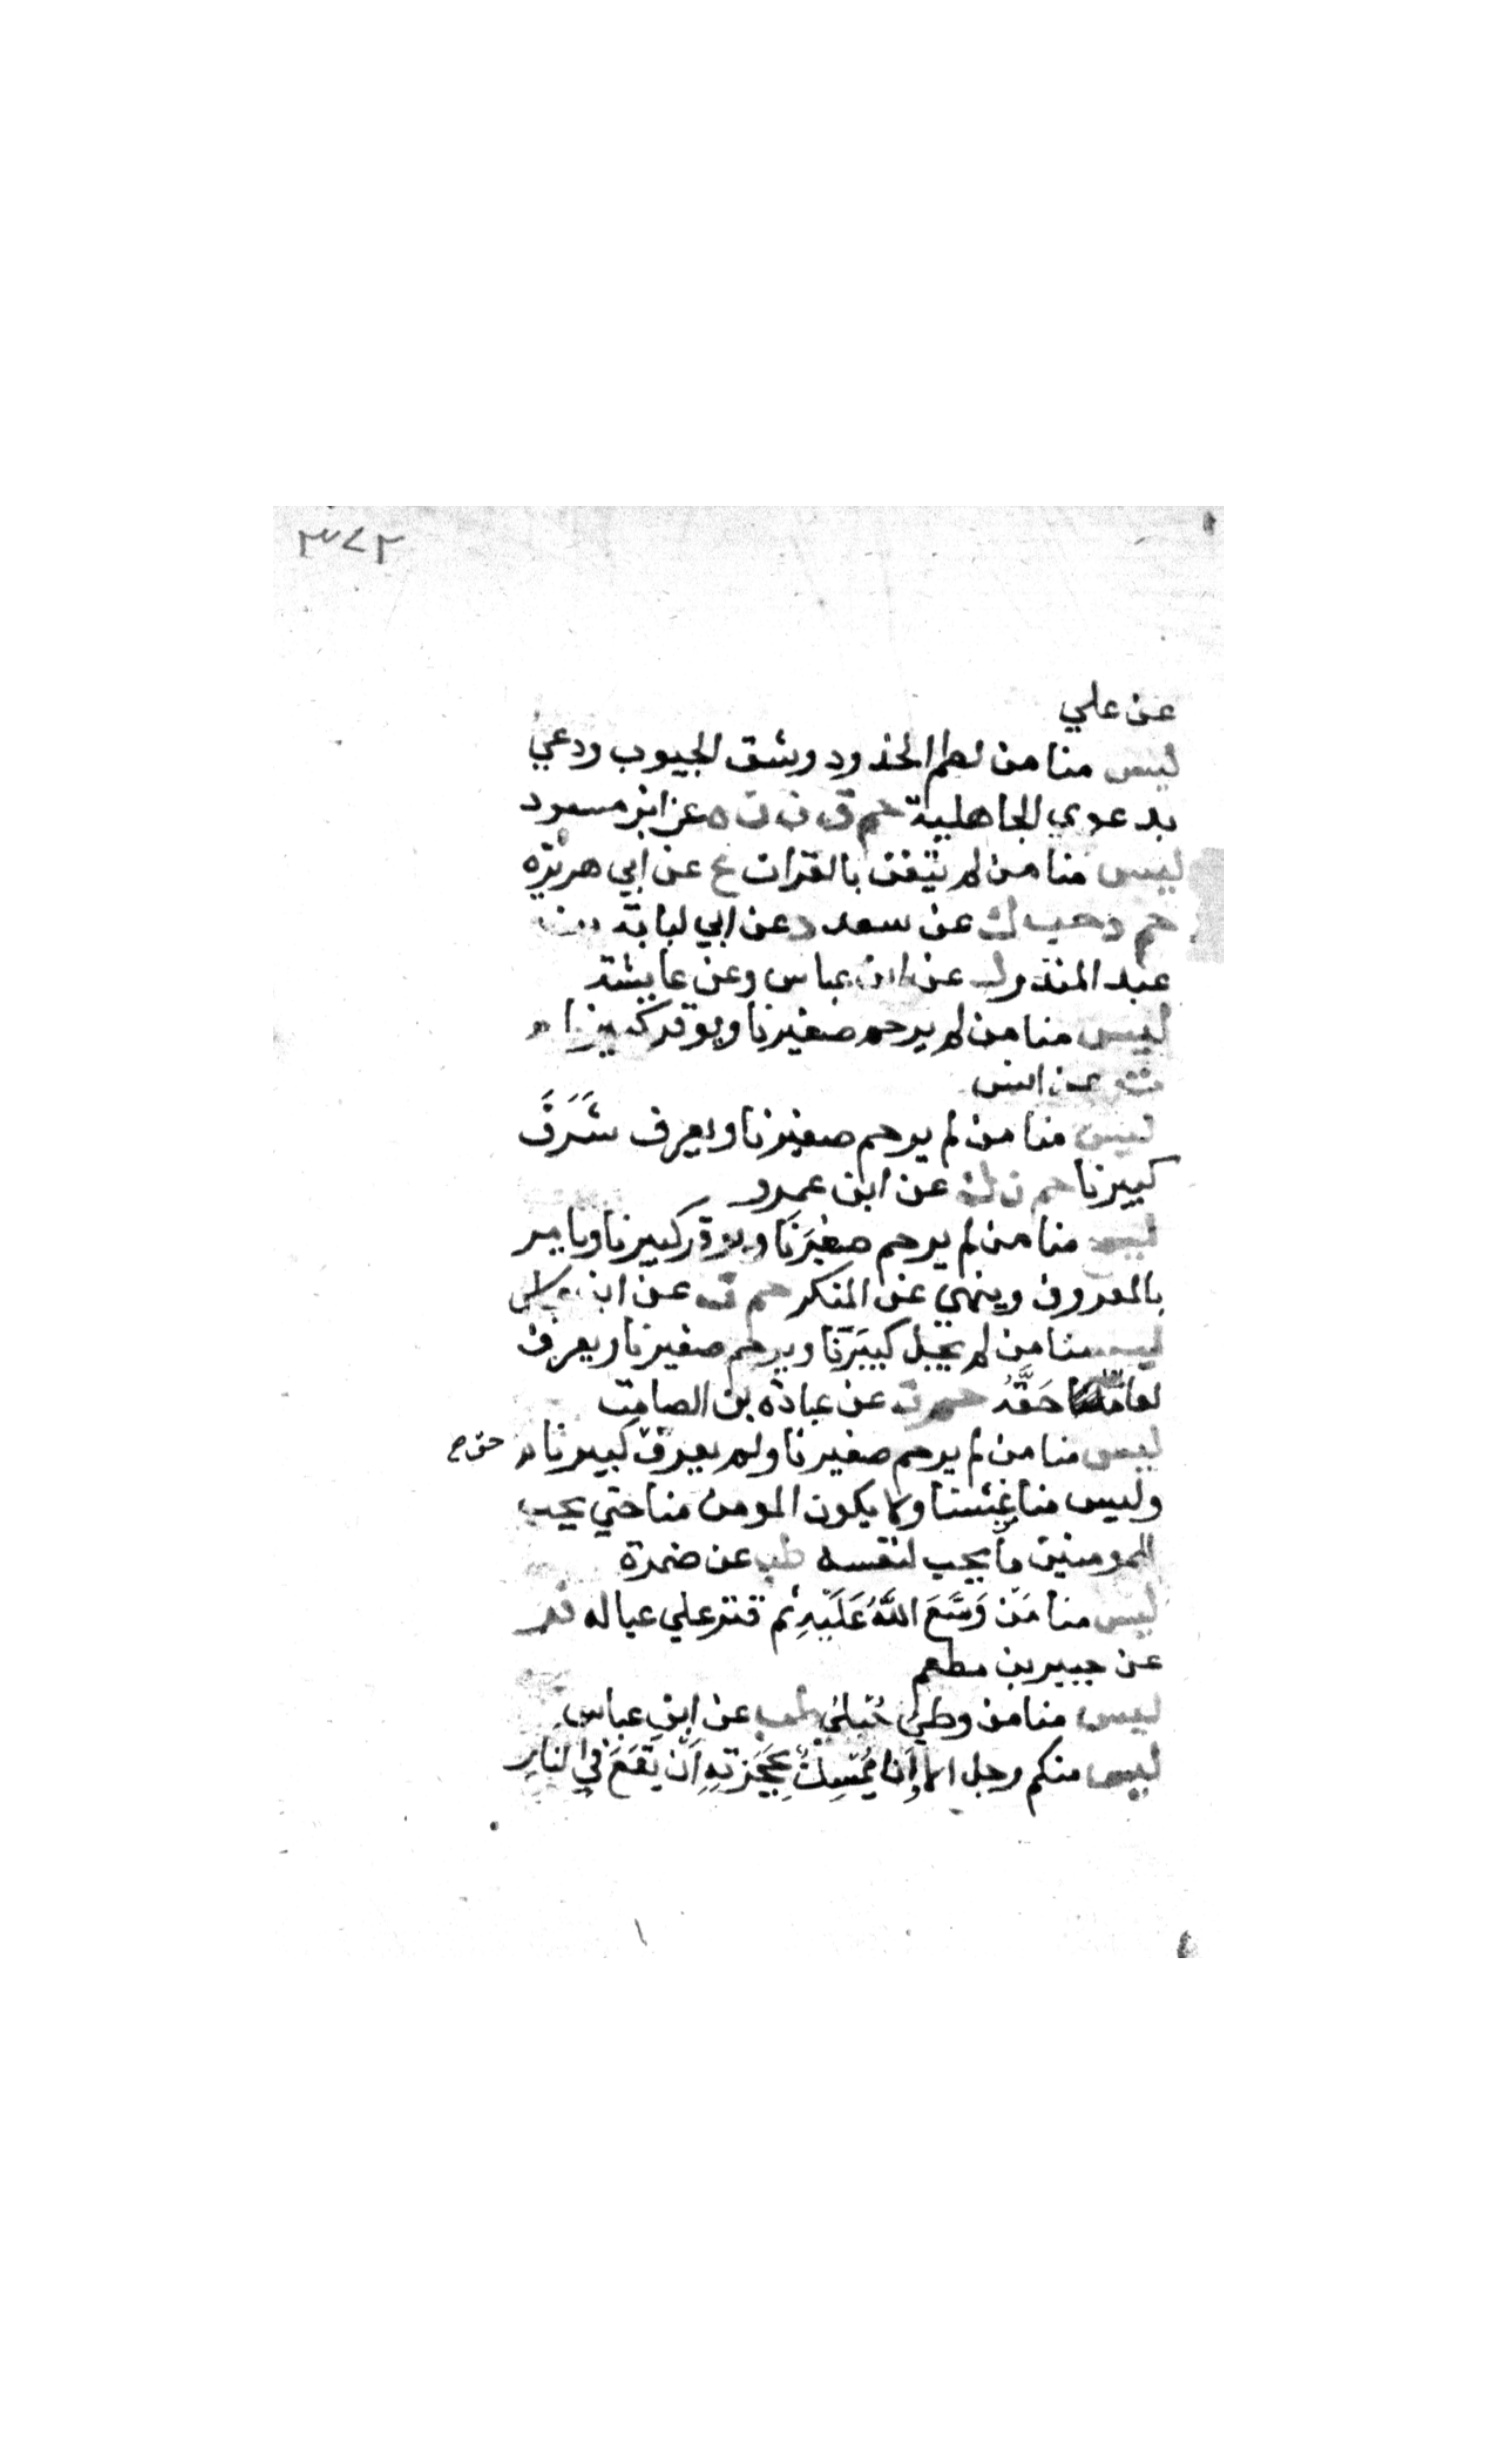 ٣٧٢
عن علي
ليس منا من لطم الخدود وشق الجيوب ودعي
بدعوي الجاهلية حم ق ت ن ه عن ابن مسعود
ليس منا من لم يتغن بالقران خ عن ابي هريرة
حم د حب ك عن سعد د عن ابي لبابة بن
عبد المنذر ك عن ابن عباس وعن عايشة
ليس منا من لم يرحم صغيرنا ويوقر كبيرنا
ت عن انس
ليس منا من لم يرحم صغيرنا ويعرف شَرَفَ
كبيرنا حم ت ك عن ابن عمرو
ليس منا من لم يرحم صغيرَنَا ويوقر كبيرنا ويامر
بالمعروف وينهي عن المنكر حم ت عن ابن عباس
ليس منا من لم يجل كبيَرنَا ويرحم صغيرنا ويعرف
حَقَّهُ حم ت عن عبادة بن الصامت
ليس منا من لم يرحم صغيرنا ولم يعرف كبيرنا حق
وليس منا غشنا ولا يكون المومن منا حتي يحب
للمومنين ما يحب لنفسه طب عن ضمرة
ليس منا مَنْ وَسَّعَ اللَّهُ عَلَيْهِ ثم قتر علي عياله فر
عن جبير بن مطعم
ليس منا من وطئ حُبْلَى طب عن ابن عباس
ليس منكم رجل الا وَاَنا مُمْسِكٌ بِحُجْزَتِهِ اَنْ يَقَعَ فِي النارِ